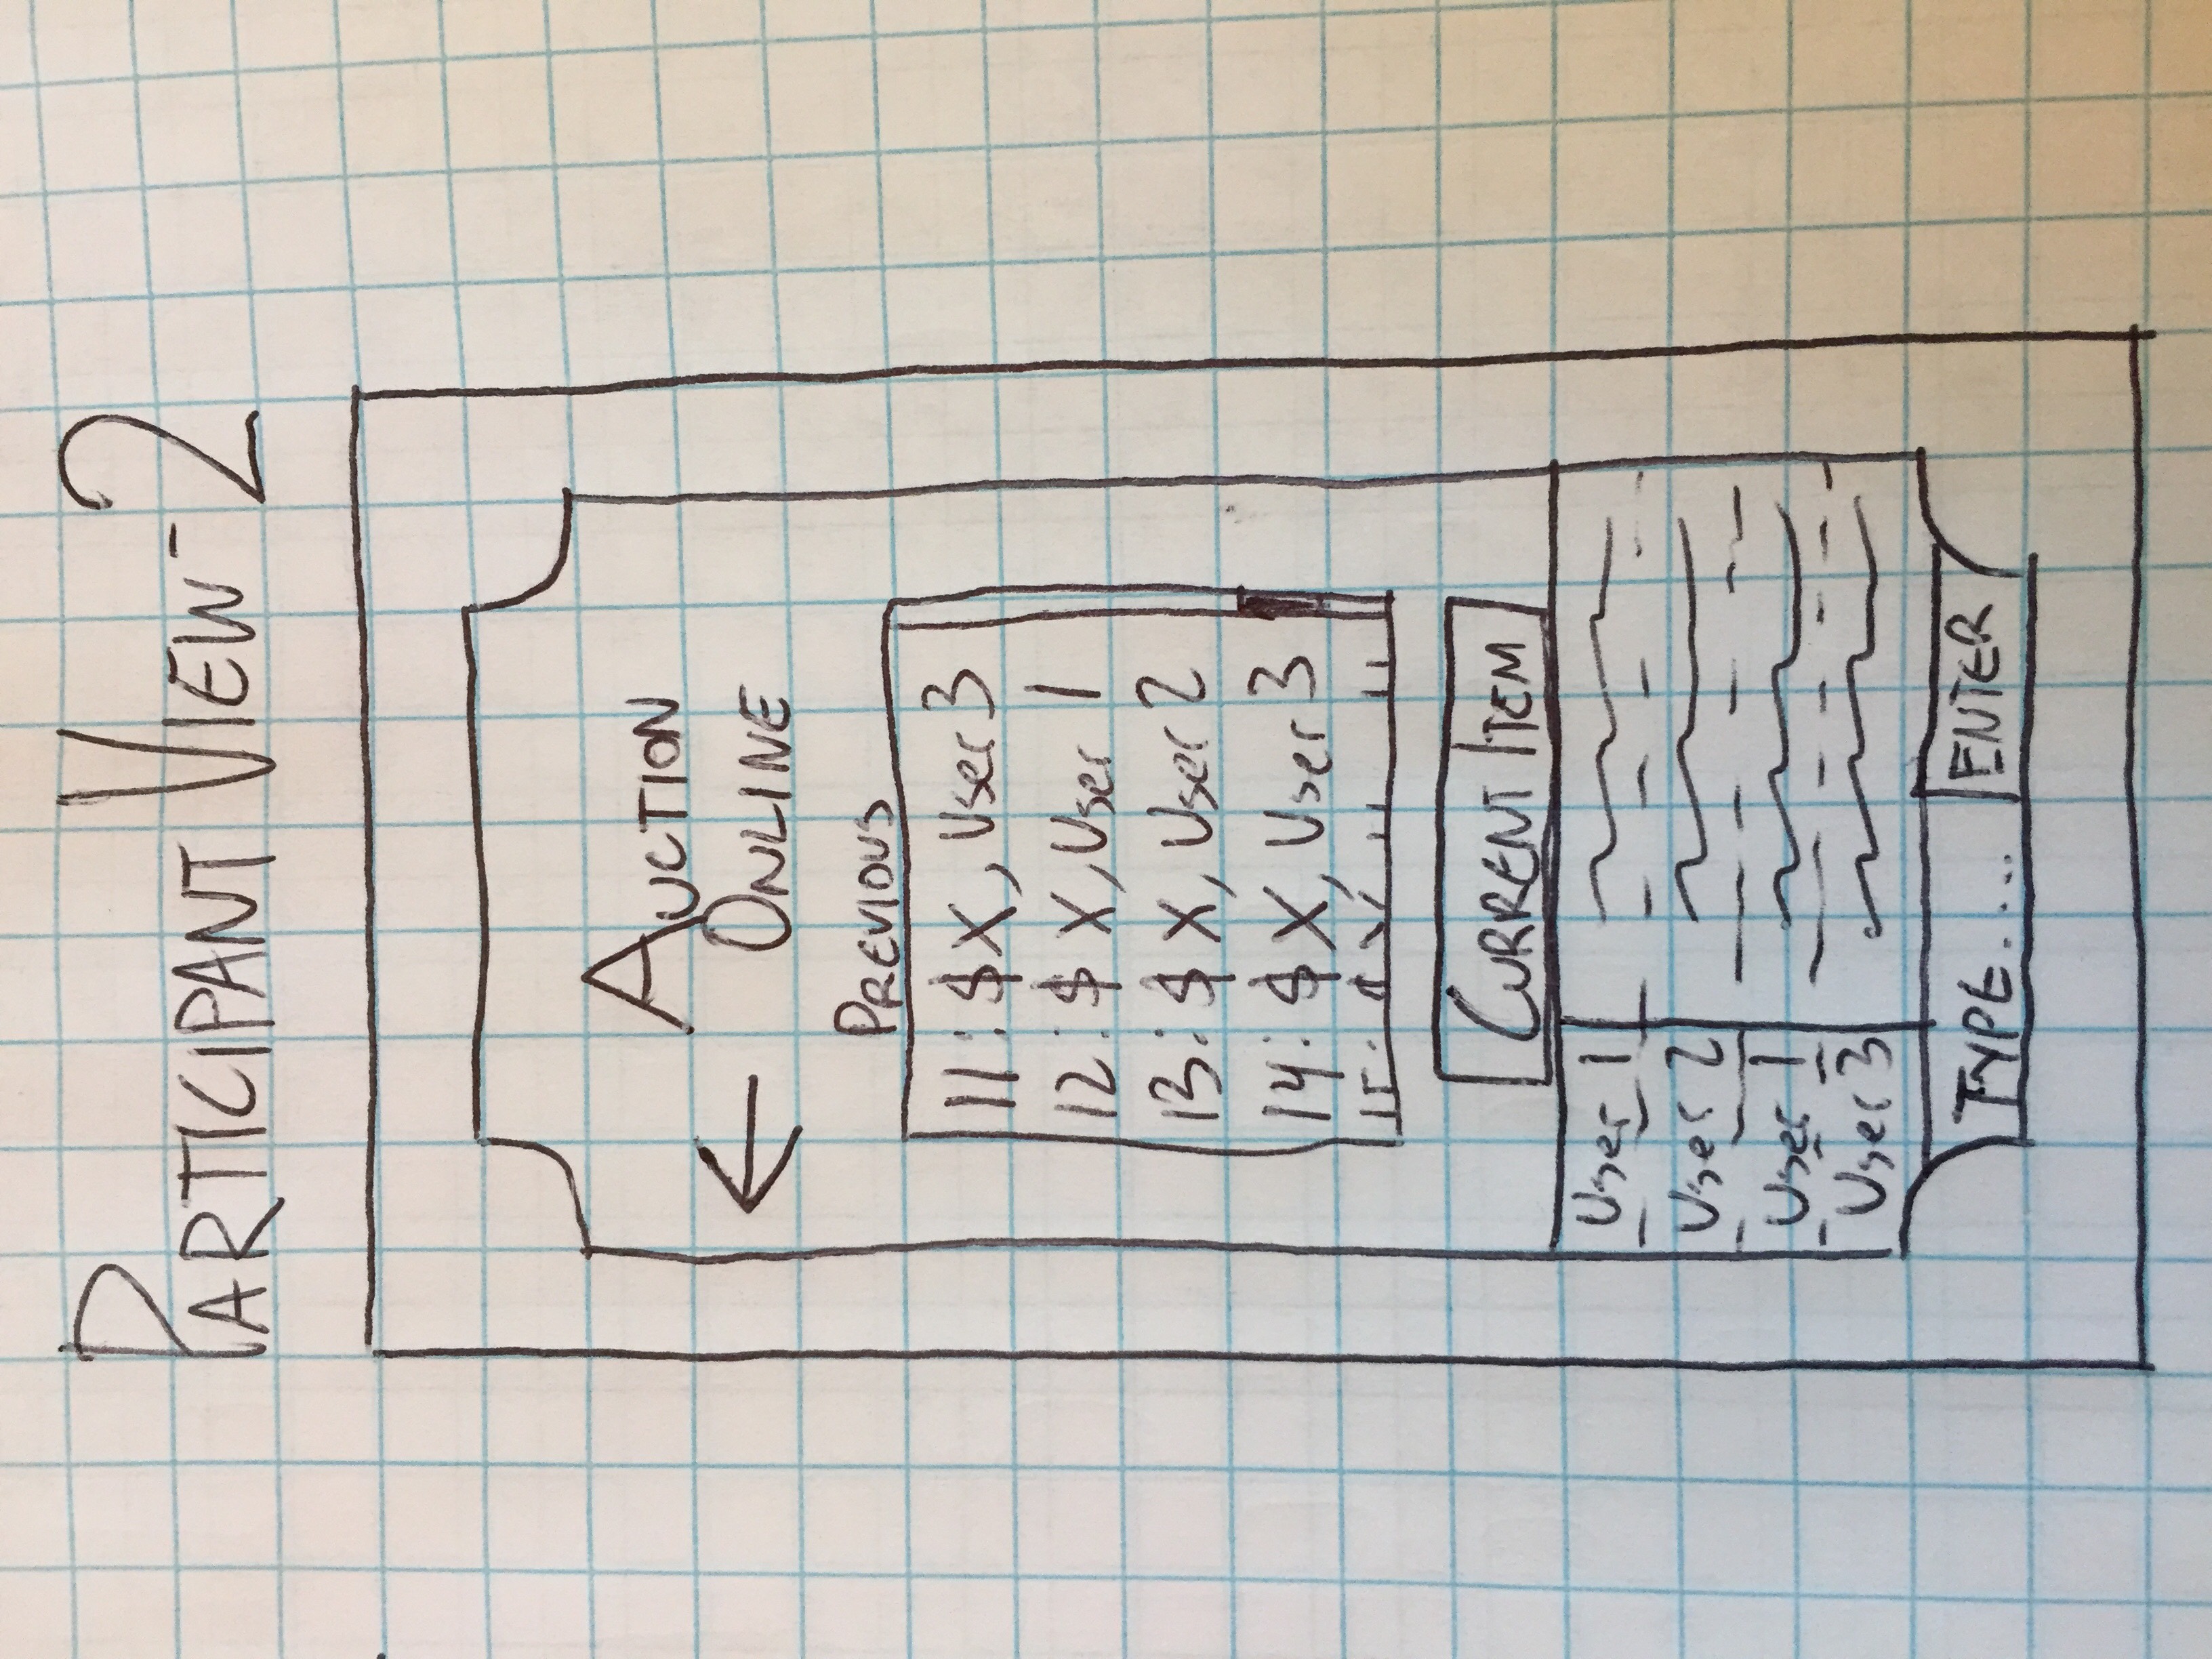 PARTICIPANT VIEW-2
AUCTION
ONLINE
PREVIOUS
11: $X, User 3
12: $X, User 1
13: $X, User 2
14: $X, User 3
CURRENT ITEM
User 1
User 2
User 1
User 3
TYPE.... ENTER